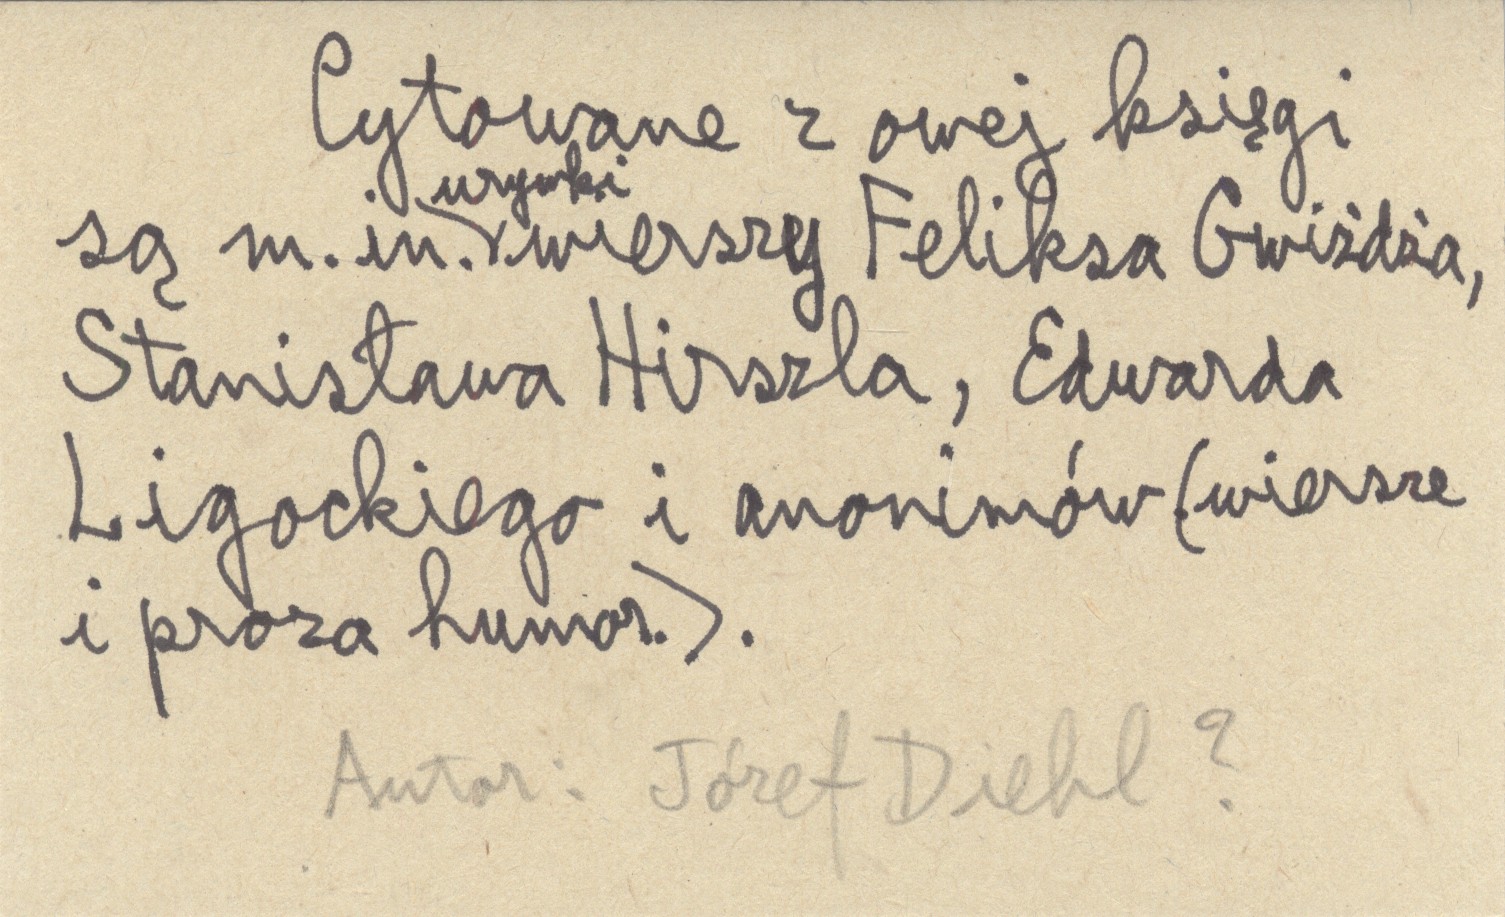 Cytowane z owej księgi
są m. in. urywki wierszy Feliksa Gwiżdża,
Stanisława Hirszla, Edwarda
Ligockiego i anonimów (wiersze
i proza humor.).
Autor: Józef Diehl ?